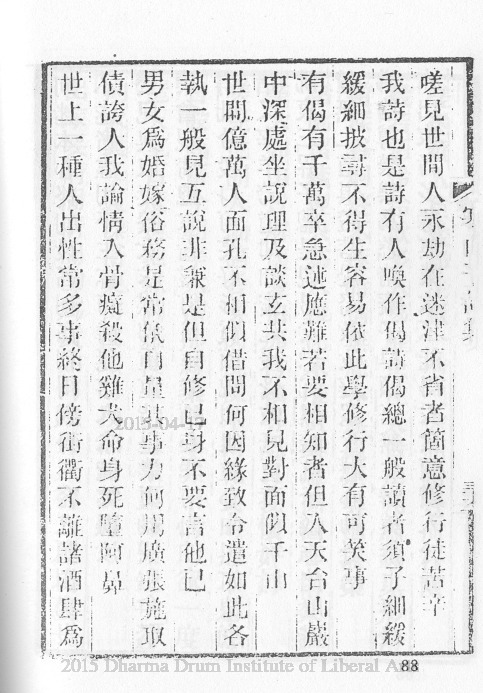 嗟見世間人永劫在迷津不省者箇意修行徒苦辛
我詩也是詩有人喚作偈詩偈總一般讀者須子細緩
緩細披尋不得生容易依此學修行大有可笑事
有偈有千萬卒急述應難若要相知者但入天台山巖
中深處坐說理及談玄共我不相見對面似千山
世間億萬人面孔不相似借問何因緣致令遣如此各
執一般見互說非兼是但自修己身不要言他已
男女爲婚嫁俗務是常儀自量其事力何用廣張施取
債誇人我論情入骨癡殺他雞犬命身死墮阿鼻
世上一種人出性常多事終日傍街衢不離諸酒肆爲
2015-04-17
2015 Dharma Drum Institute of Liberal
88